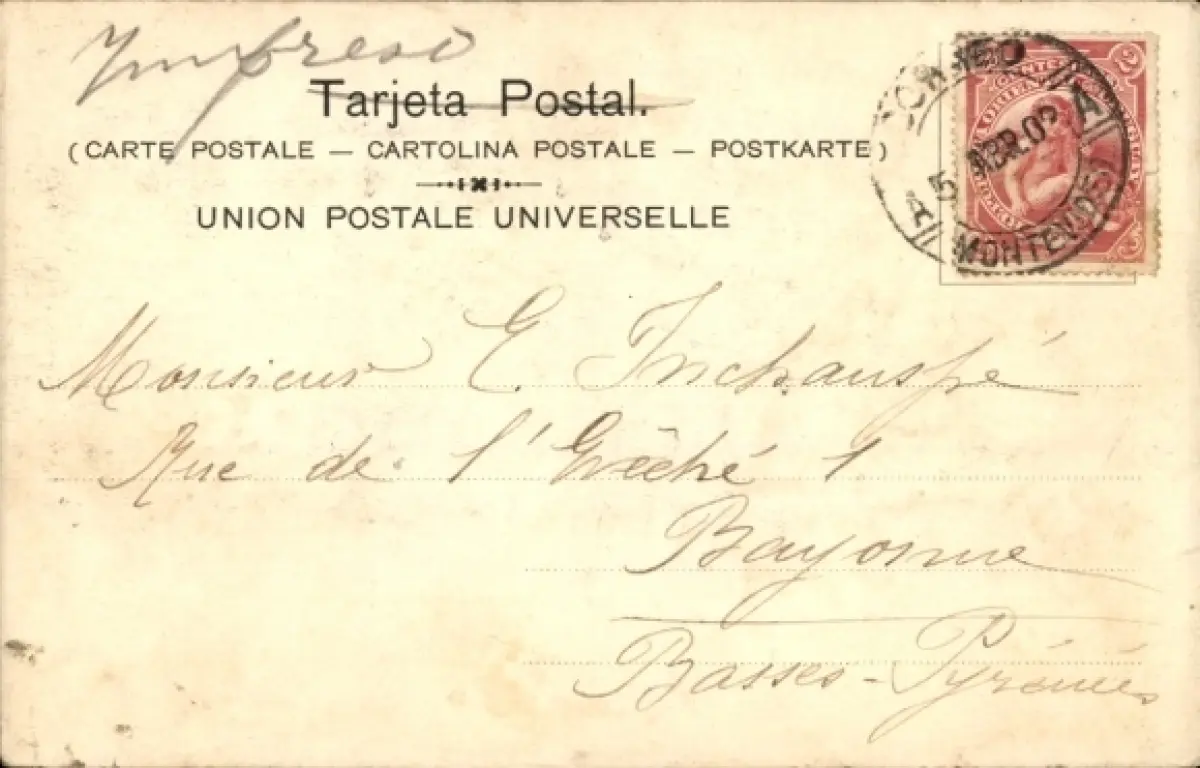 Impreso
Tarjeta Postal.
(CARTE POSTALE — CARTOLINA POSTALE — POSTKARTE)
UNION POSTALE UNIVERSELLE
CORREO
A 5 ABR. 02 A
MONTEVIDEO
2
Monsieur E. Inchauspé
Rue de l'Evêché 1
Bayonne
Basses-Pyrénées